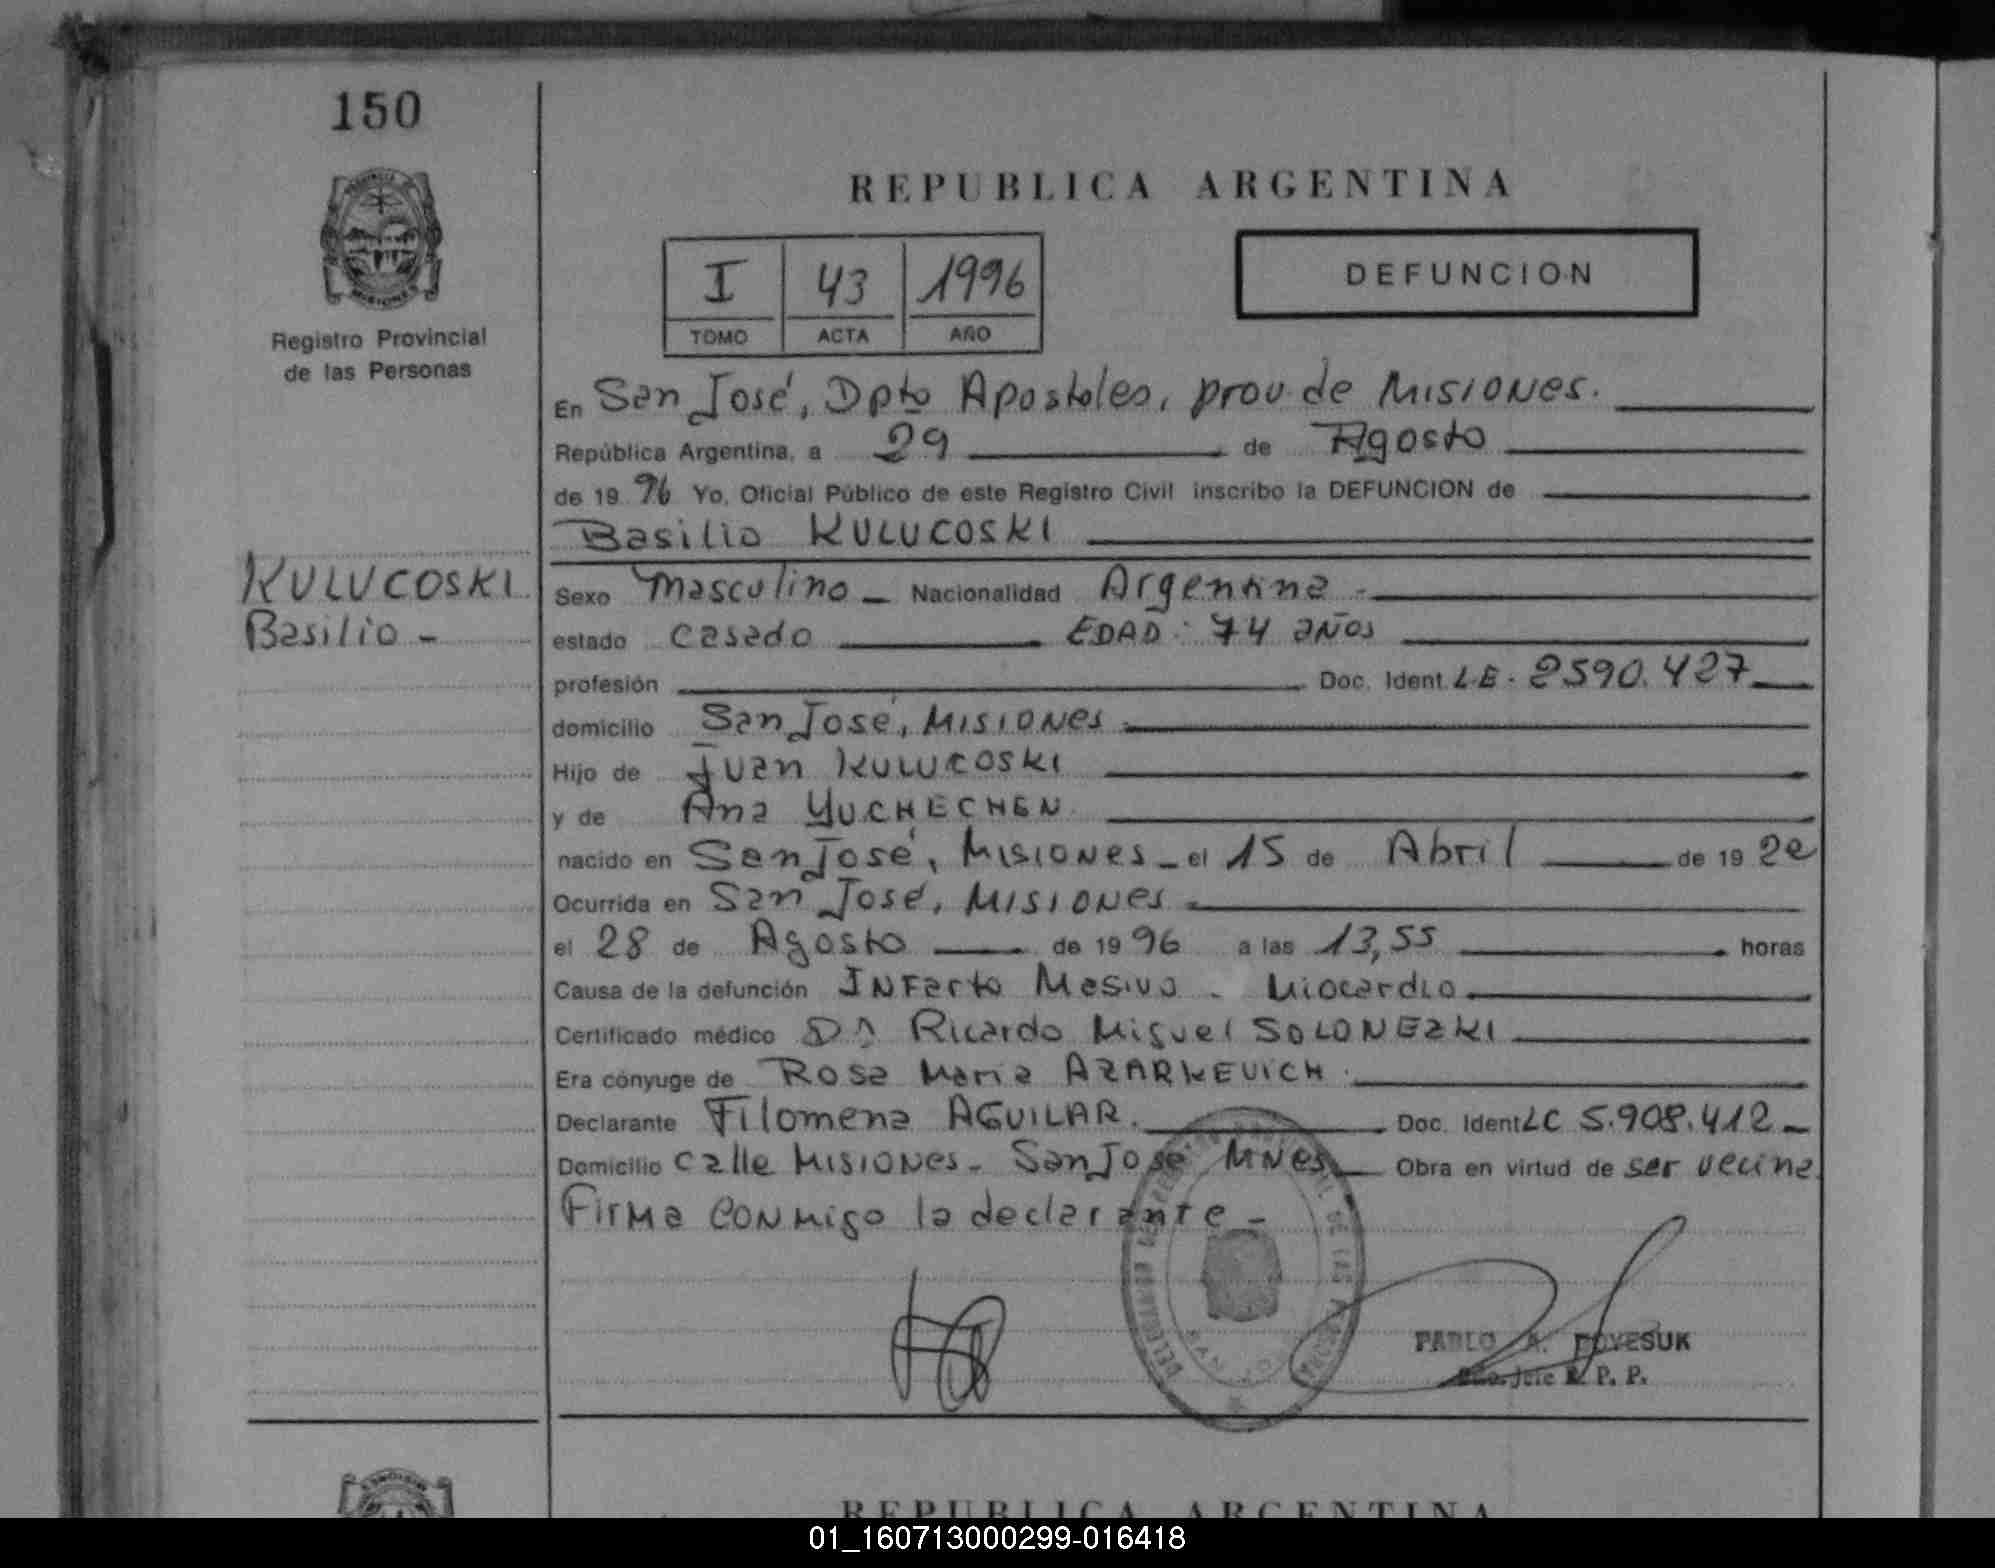 150
PROVINCIA
MISIONES
Registro Provincial
de las Personas
REPUBLICA ARGENTINA
I 43 1996
TOMO ACTA AÑO
DEFUNCION
En San José, Dpto Apostoles, prov. de Misiones.
República Argentina, a 29 de Agosto
de 19 96 Yo, Oficial Público de este Registro Civil inscribo la DEFUNCION de
Basilio KULUCOSKI
KULUCOSKI
Basilio -
Sexo Masculino - Nacionalidad Argentina -
estado casado EDAD: 74 años
profesión Doc. Ident. L.E. 2590.427
domicilio San José, Misiones
Hijo de Juan KULUCOSKI
y de Ana YUCHECHEN
nacido en San José, Misiones - el 15 de Abril de 19 22
Ocurrida en San José, Misiones
el 28 de Agosto de 19 96 a las 13,55 horas
Causa de la defunción Infarto Masivo - Miocardio
Certificado médico Dr Ricardo Miguel SOLONEZKI
Era cónyuge de Rosa Maria AZARKEVICH
Declarante Filomena AGUILAR. Doc. Ident LC 5.908.412 -
Domicilio calle Misiones - San José Mnes Obra en virtud de ser vecina
Firma conmigo la declarante -
PABLO A. POYESUK
Jefe R. P. P.
REPUBLICA ARGENTINA
01_160713000299-016418